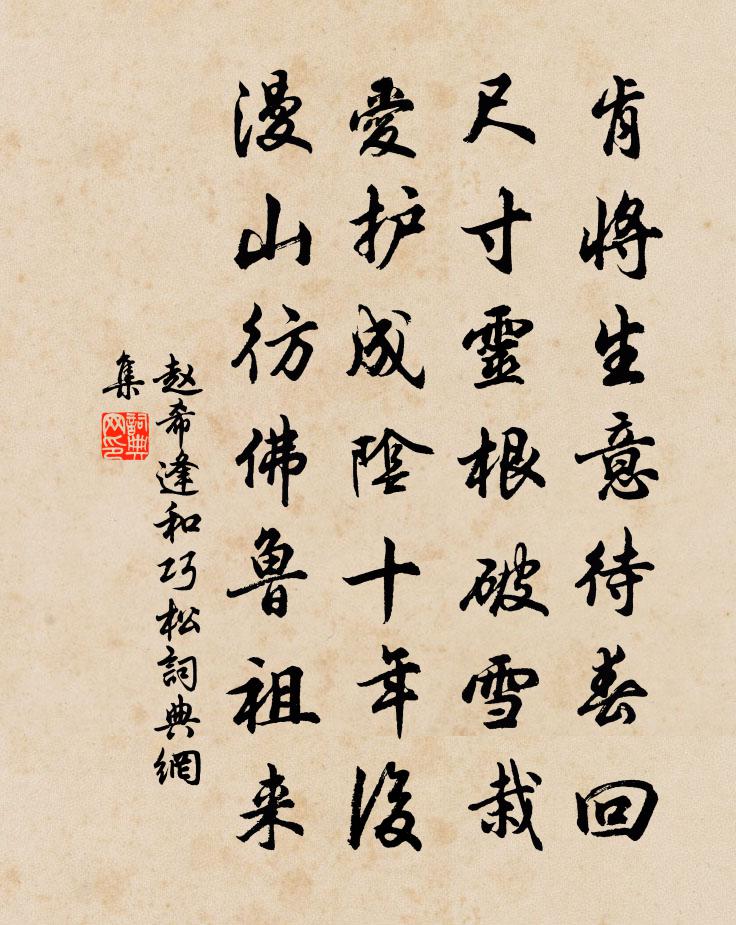 肯將生意待春回
尺寸靈根破雪栽
愛护成陰十年後
漫山彷佛魯祖来
赵希逢和巧松詞典網
集
詞典
网印